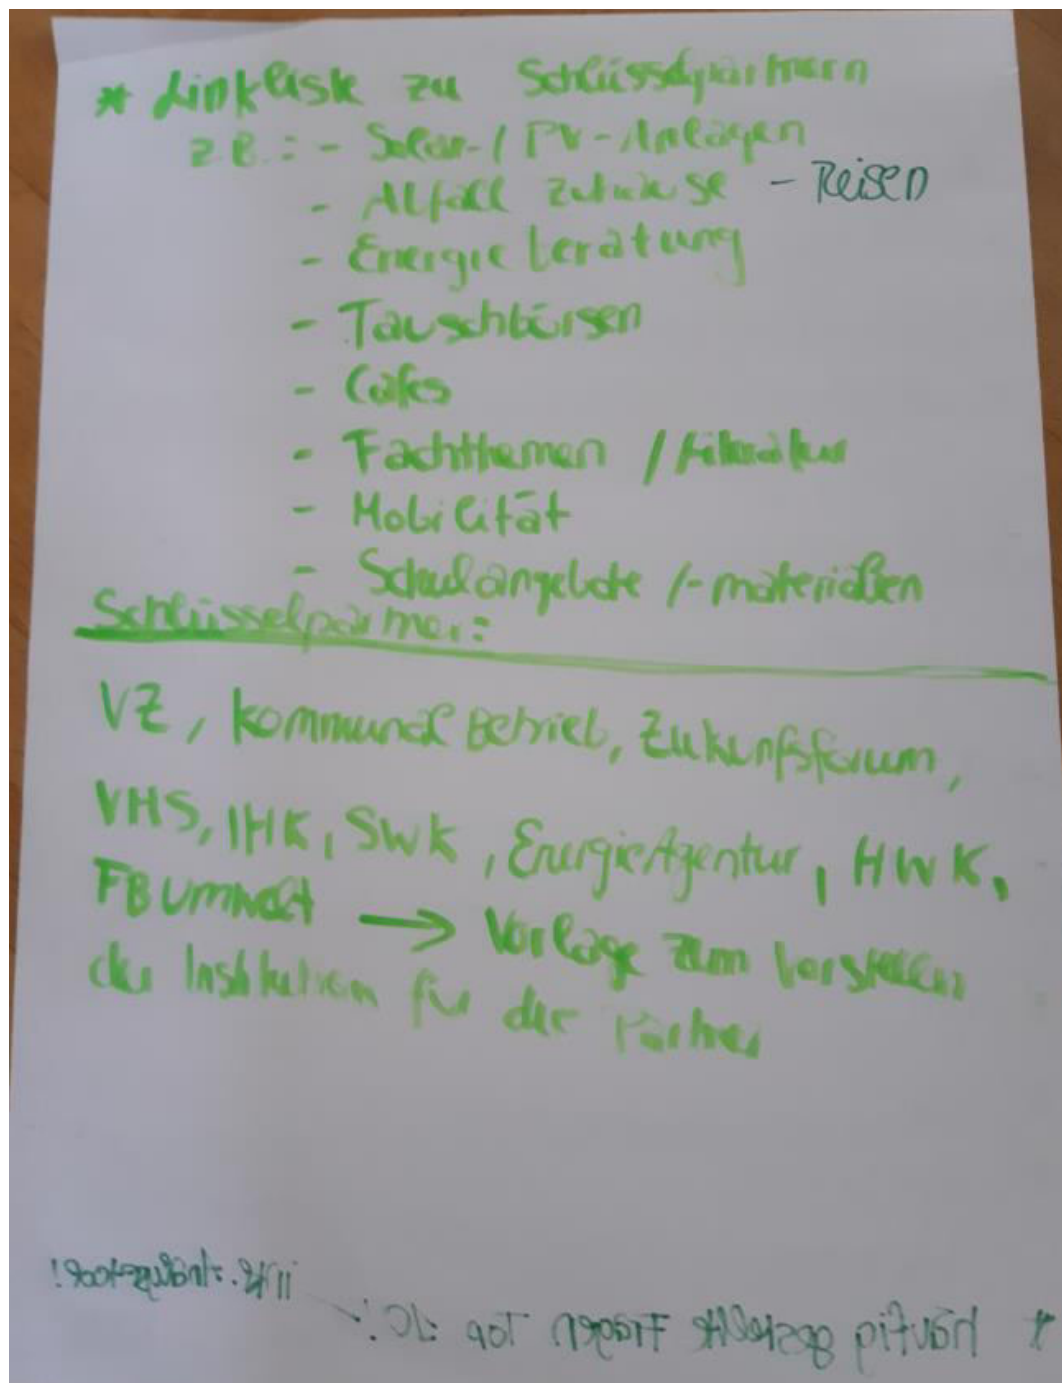 * Linkliste zu Schlüsselpartnern
z.B.: - Solar-/PV-Anlagen
- Abfall zuhause - Reisen
- Energieberatung
- Tauschbörsen
- Cafes
- Fachthemen / Literatur
- Mobilität
- Schulangebote /-materialien
Schlüsselpartner:
VZ, Kommunal Betrieb, Zukunfsforum,
VHS, IHK, SWK, EnergieAgentur, HWK,
FB Umwelt → Vorlage zum Vorstellen
der Institution für die Partner
* häufig gestellte Fragen Top 10!